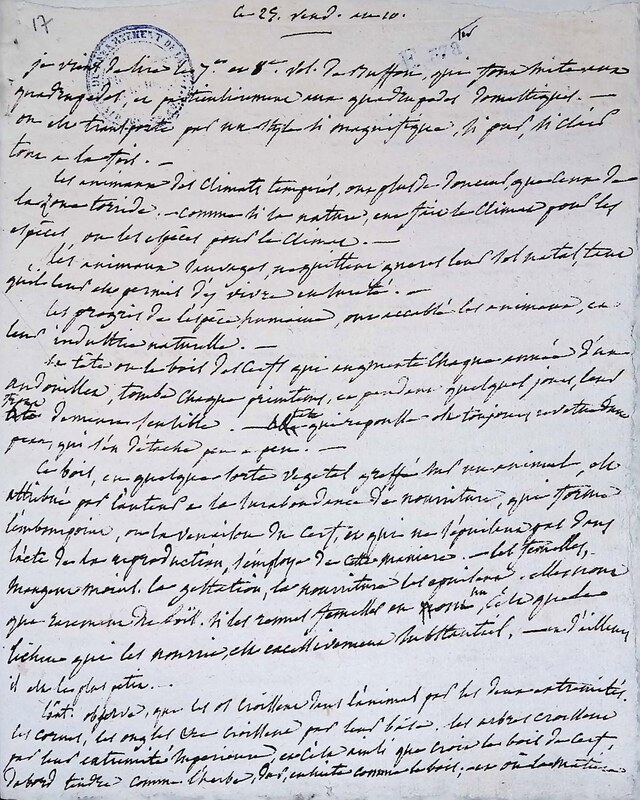 17
le 25. vend. an 10.
DÉPARTEMENT DE LA
je viens de lire le 7.me et 8.me vol. de Buffon, qui sont mite aux
quadrupedes, et particulierement aux quadrupedes domestiques. —
on est transporté par un style si magnifique, si pur, si clair
tout a la fois. —
les animaux des climats temperés, ont plus de douceur, que ceux de
la zone torride. — comme si la nature, eut fait le climat pour les
especes, ou les especes pour le climat. —
les animaux sauvages, ne quittent gueres leur sol natal, tant
qu'il leur est permis d'y vivre en sureté. —
les progrès de l'espèce humaine, ont accablé les animaux, et
leur industrie naturelle. —
la tête ou le bois des cerfs qui augmente chaque année d'un
andouiller, tombe chaque printems, et pendant quelques jours, leur
demeure sensible. — tête qui repousse est toujours revetue d'une
peau, qui s'en détache peu a peu. —
Ce bois, en quelque sorte vegetal greffé sur un animal, est
attribué par l'auteur a la surabondance de nourriture, qui forme
l'embonpoint, ou la venaison du cerf, et qui ne s'épuisant pas dans
l'acte de la reproduction, s'employe de cette maniere. — les femelles,
mangent moins. la gestation, la nourriture les épuisent. elles n'ont
que rarement du bois. si les rennes femelles en ont, c'est que le
lichen qui les nourrit, est excessivement substantiel, — et d'ailleurs
il est le plus petit. —
l'aut. observe, que les os croissent dans l'animal par les deux extremités.
les cornes, les ongles croissent par leur base. les arbres croissent
par leur extremité superieure, et c'est ainsi que croit le bois du cerf,
d'abord tendre comme l'herbe, dur, ensuite comme le bois, — et où la matiere